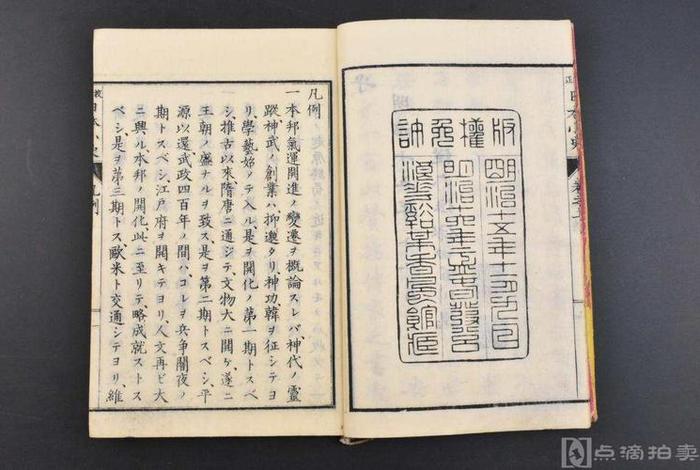 日本小史 卷之上
版權免許
明治十五年十一月九日
凡例
一本邦氣運開進ノ變遷ヲ概論スレバ、神代ノ靈
蹤神武ノ創業ハ抑邈タリ、神功韓ヲ征シテヨ
リ、學藝始テ入ル、是ヲ開化ノ第一期トスベ
シ、推古以來隋唐ニ通シテ、文物大ニ開ケ、遂ニ
王朝ノ盛ナルヲ致ス、是ヲ第二期トスベシ、平
源以還武政四百年ノ間ハ、コレヲ兵爭闇夜ノ
期トスベシ、江戸府ヲ開キテヨリ、人文再ビ大
ニ興ル、本邦ノ開化、此ニ至リテ、略成就ストス
ベシ、是ヲ第三期トス、歐米ト交通シテヨリ、維
日本小史 凡例 一
点滴拍卖